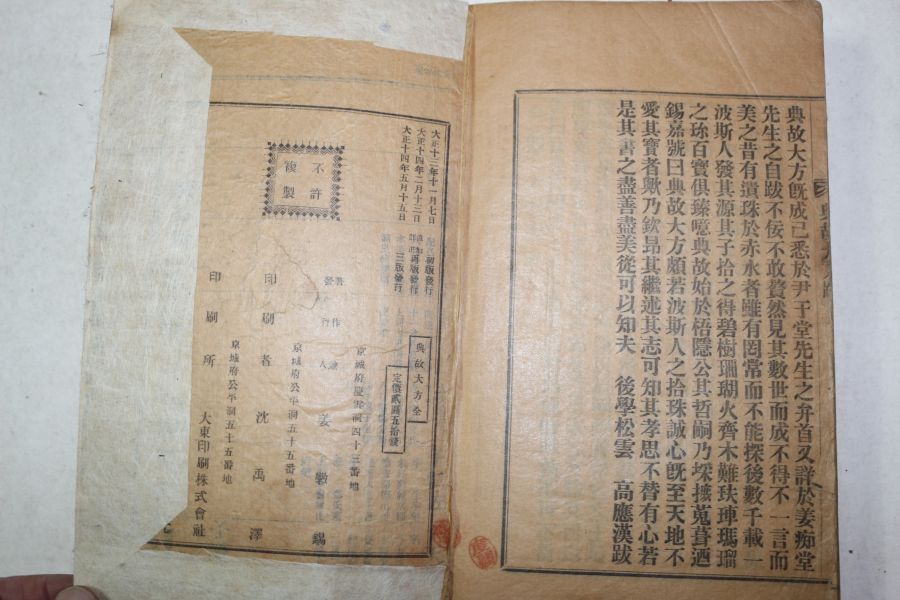 典故大方旣成已悉於尹于堂先生之弁首又詳於姜痴堂
先生之自跋不佞不敢贅然見其數世而成不得不一言而
美之昔有遺珠於赤水者雖有罔常而不能探後數千載一
波斯人發其源其子拾之得碧樹珊瑚火齊木難玞㻞瑪瑠
之珎百寶俱臻噫典故始於梧隱公其哲嗣乃埰攟蒐葺迺
錫嘉號曰典故大方頗若波斯人之拾珠誠心旣至天地不
愛其寶者歟乃欽昂其繼述其志可知其孝思不替有心若
是其書之盡善盡美從可以知夫 後學松雲 高應漢跋
大正十三年十一月七日 初版發行
大正十四年二月十三日 再版發行
大正十四年五月十五日 三版發行
不許
複製
典故大方全
定價貳圓五拾錢
京城府慶雲洞四十三番地
著作兼
發行人 姜斅錫
京城府公平洞五十五番地
印刷者 沈禹澤
京城府公平洞五十五番地
印刷所 大東印刷株式會社